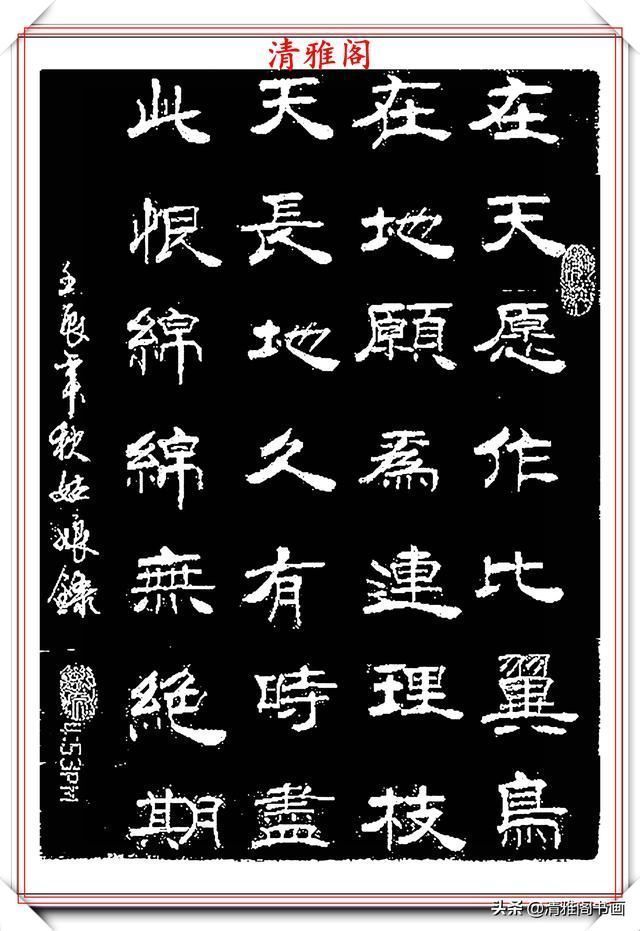 清雅阁
在天愿作比翼鳥
在地願爲連理枝
天長地久有時盡
此恨綿綿無絶期
壬辰年秋姑娘錄
头条 @清雅阁书画